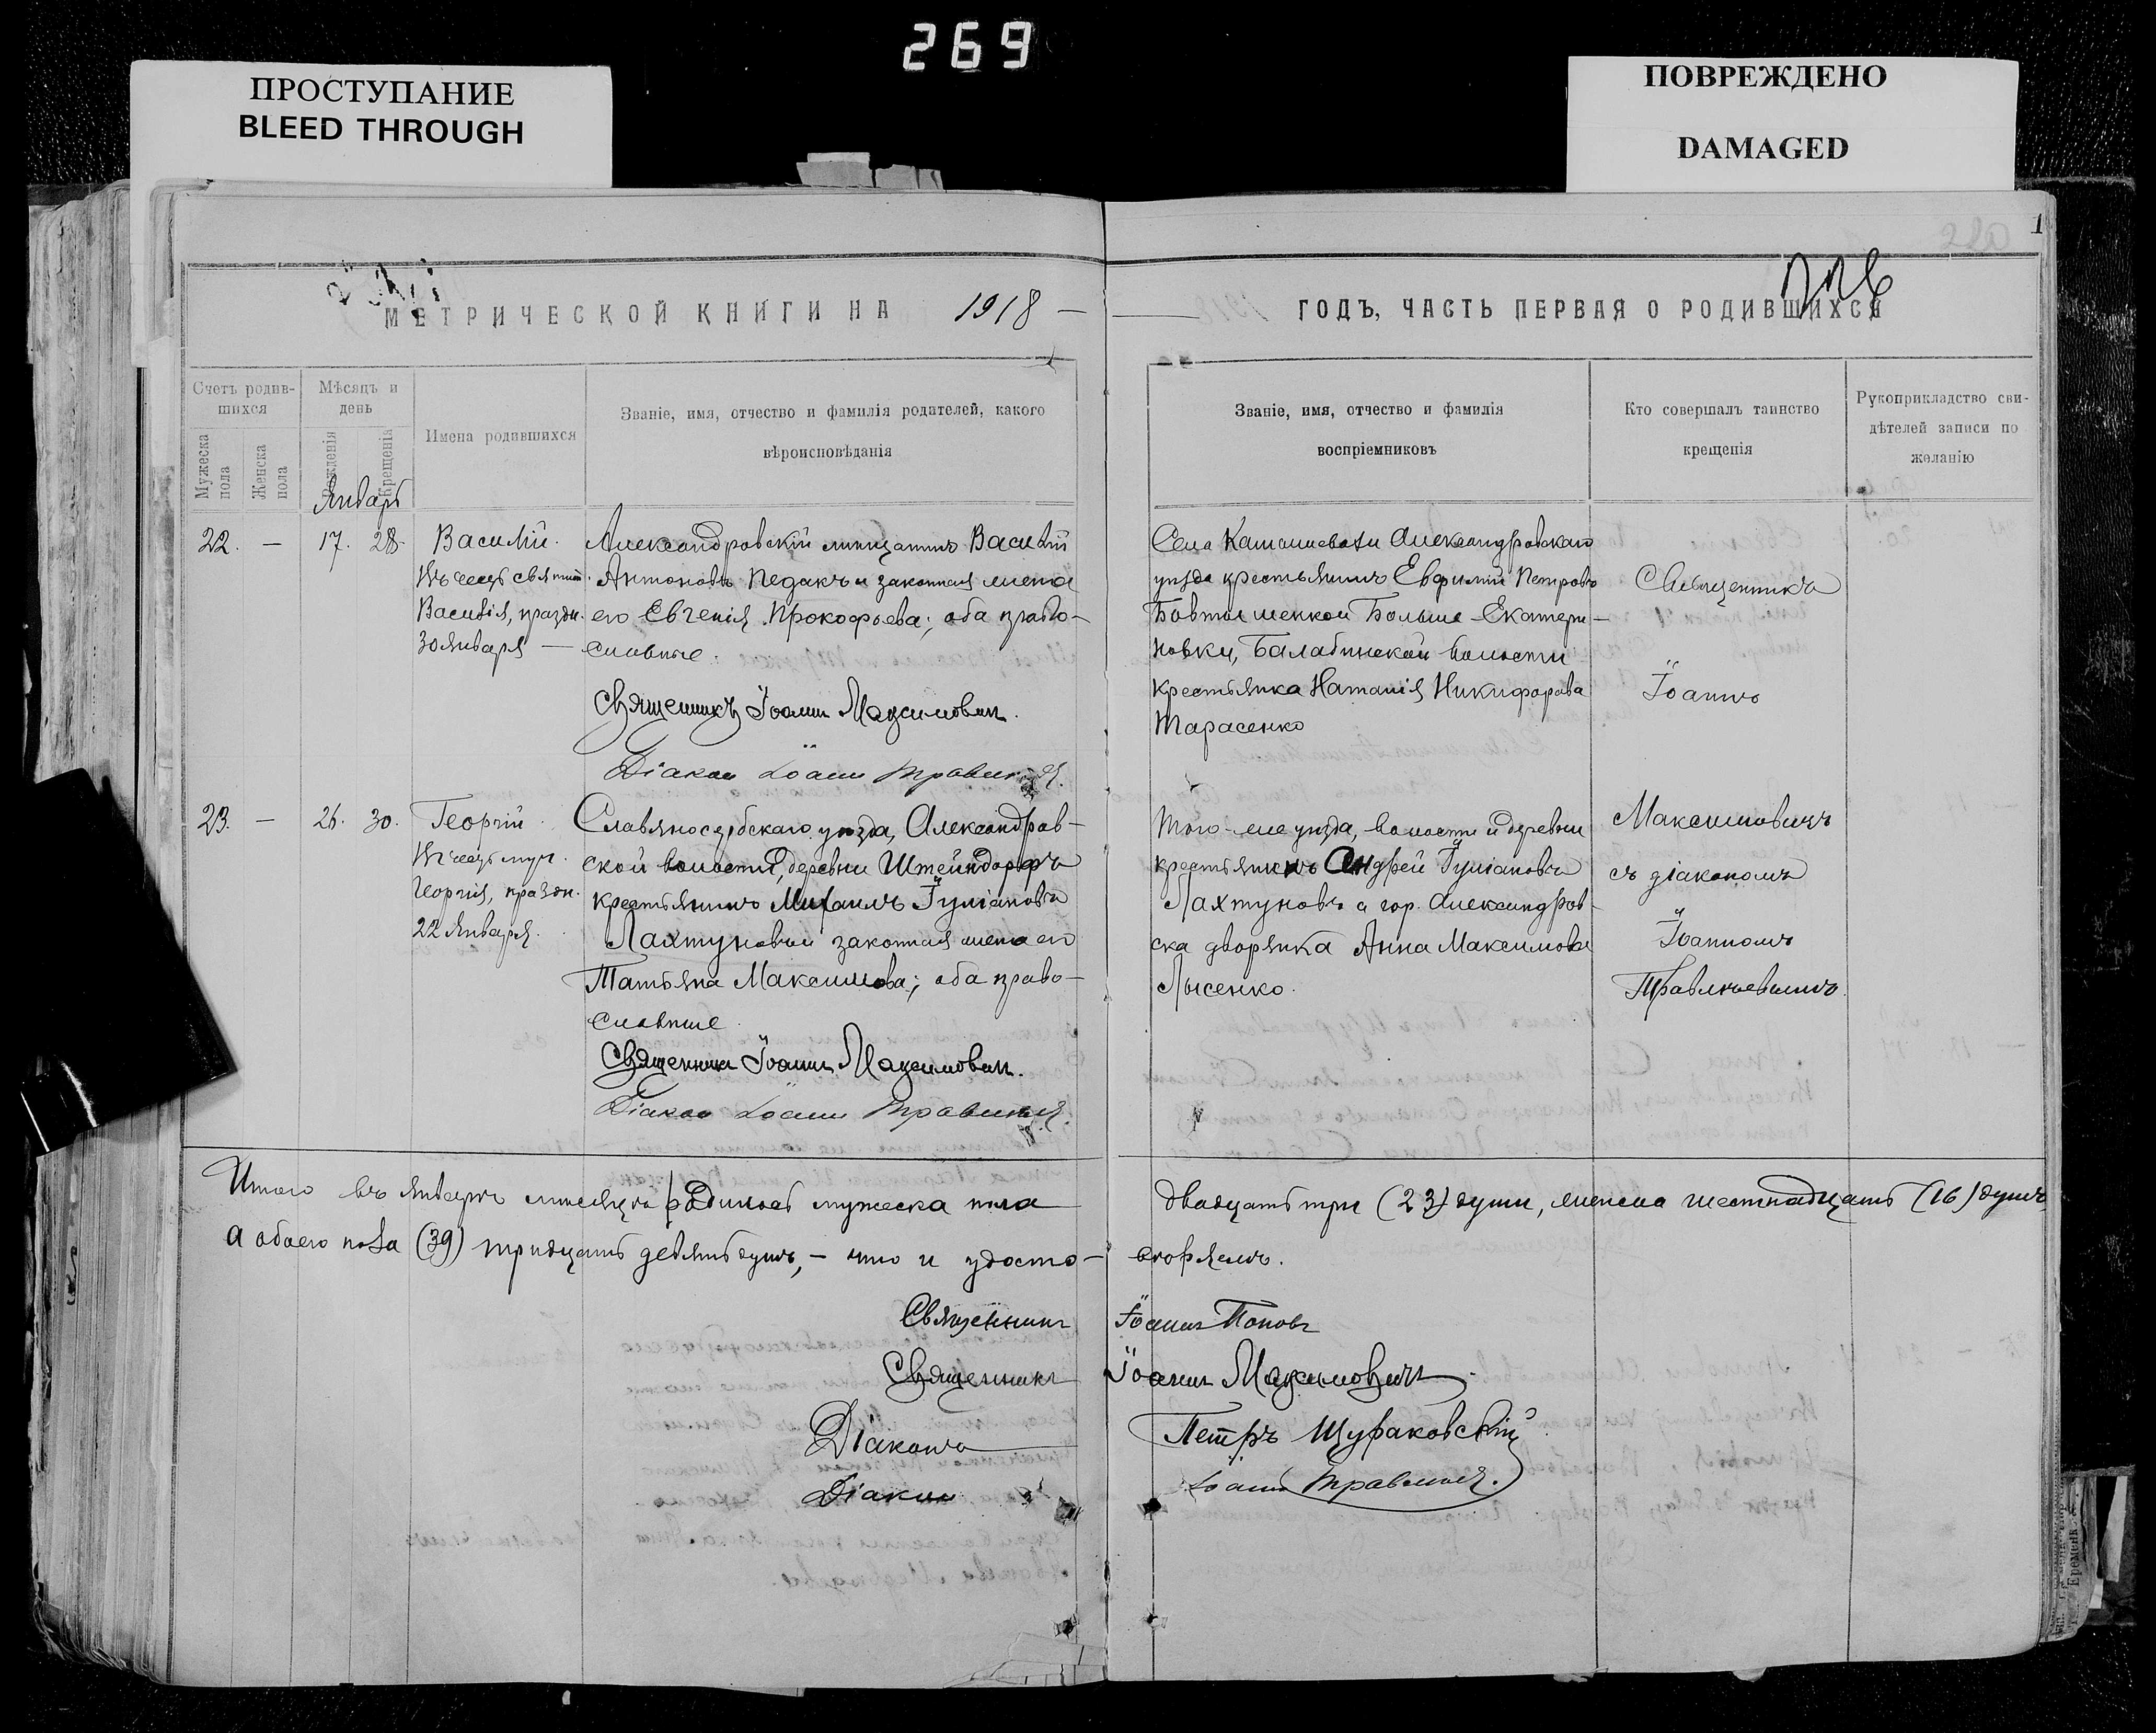 269
ПРОСТУПАНИЕ
BLEED THROUGH
ПОВРЕЖДЕНО
DAMAGED
1
МЕТРИЧЕСКОЙ КНИГИ НА 1918 —
ГОДЪ, ЧАСТЬ ПЕРВАЯ О РОДИВШИХСЯ
Счетъ родив-
шихся
Мужеска
пола
Женска
пола
Мѣсяцъ и
день
Рожденія
Крещенія
Имена родившихся
Званіе, имя, отчество и фамилія родителей, какого
вѣроисповѣданія
Званіе, имя, отчество и фамилія
воспріемниковъ
Кто совершалъ таинство
крещенія
Рукоприкладство сви-
дѣтелей записи по
желанію
Январь
22. — 17. 28.
Василій.
Въ честь святит.
Василія, праздн.
30 января —
Александровскій мѣщанинъ Василій
Антоновъ Педакъ и законная жена
его Евгенія Прокофьева; оба право-
славные.
Священникъ Іоаннъ Максимович.
Діакон Іоанн
Села Каташевахи Александровскаго
уѣзда крестьянинъ Евфимій Петровъ
Больше-Екатери-
новки, Балабинской волости
крестьянка Наталія Никифорова
Тарасенко
Священникъ
Іоаннъ
23. — 26. 30.
Георгій.
Въ честь муч.
Георгія, праздн.
22 января.
Славяносербскаго уѣзда, Александров-
ской волости, деревни Штейндорфъ
крестьянинъ Михаилъ Іуліановъ
Лахтуновъ и законная жена его
Татьяна Максимова; оба право-
славные
Священникъ Іоаннъ Максимович.
Діакон Іоанн
Того-же уѣзда, волости и деревни
крестьянинъ Андрей Іуліановъ
Лахтуновъ и гор. Александров-
ска дворянка Анна Максимова
Лысенко.
Максимовичъ
съ діакономъ
Іоанномъ
Итого въ январѣ мѣсяцѣ родилось мужеска пола
двадцать три (23) души, женска шестнадцать (16) душъ,
а обоего пола (39) тридцать девять душъ, — что и удосто-
вѣряемъ.
Священникъ Іоаннъ Поповъ
Священникъ Іоаннъ Максимовичъ
Діаконъ Петръ Щураковскій
Діакон Іоанн